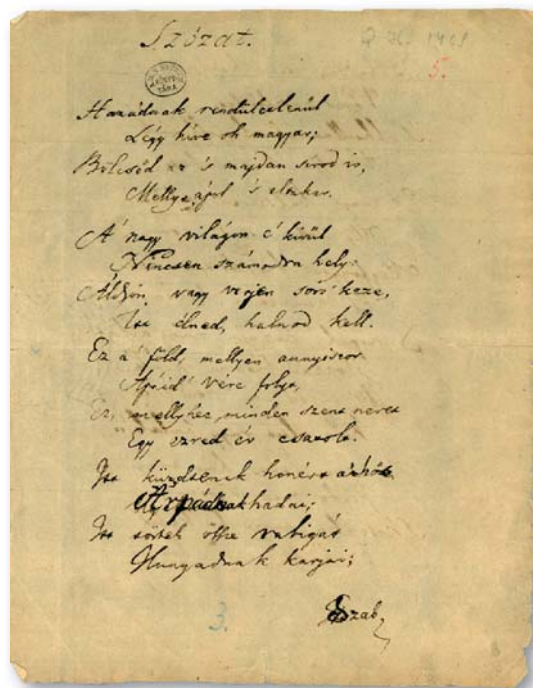 Szózat.
5.
Hazádnak rendületlenűl
Légy híve oh magyar;
Bölcsőd az 's majdan sirod is,
Melly ápol 's eltakar.
A' nagy világon é kívűl
Nincsen számodra hely;
Áldjon vagy verjen sors' keze,
Itt élned, halnod kell.
Ez a' föld, mellyen annyiszor
Apáid' vére folyt,
Ez, mellyhez minden szent nevet
Egy ezred év csatolt.
Itt küzdtenek honért a' hős
Árpádnak hadai;
Itt törtek össze rabigát
Hunyadnak karjai;
3.